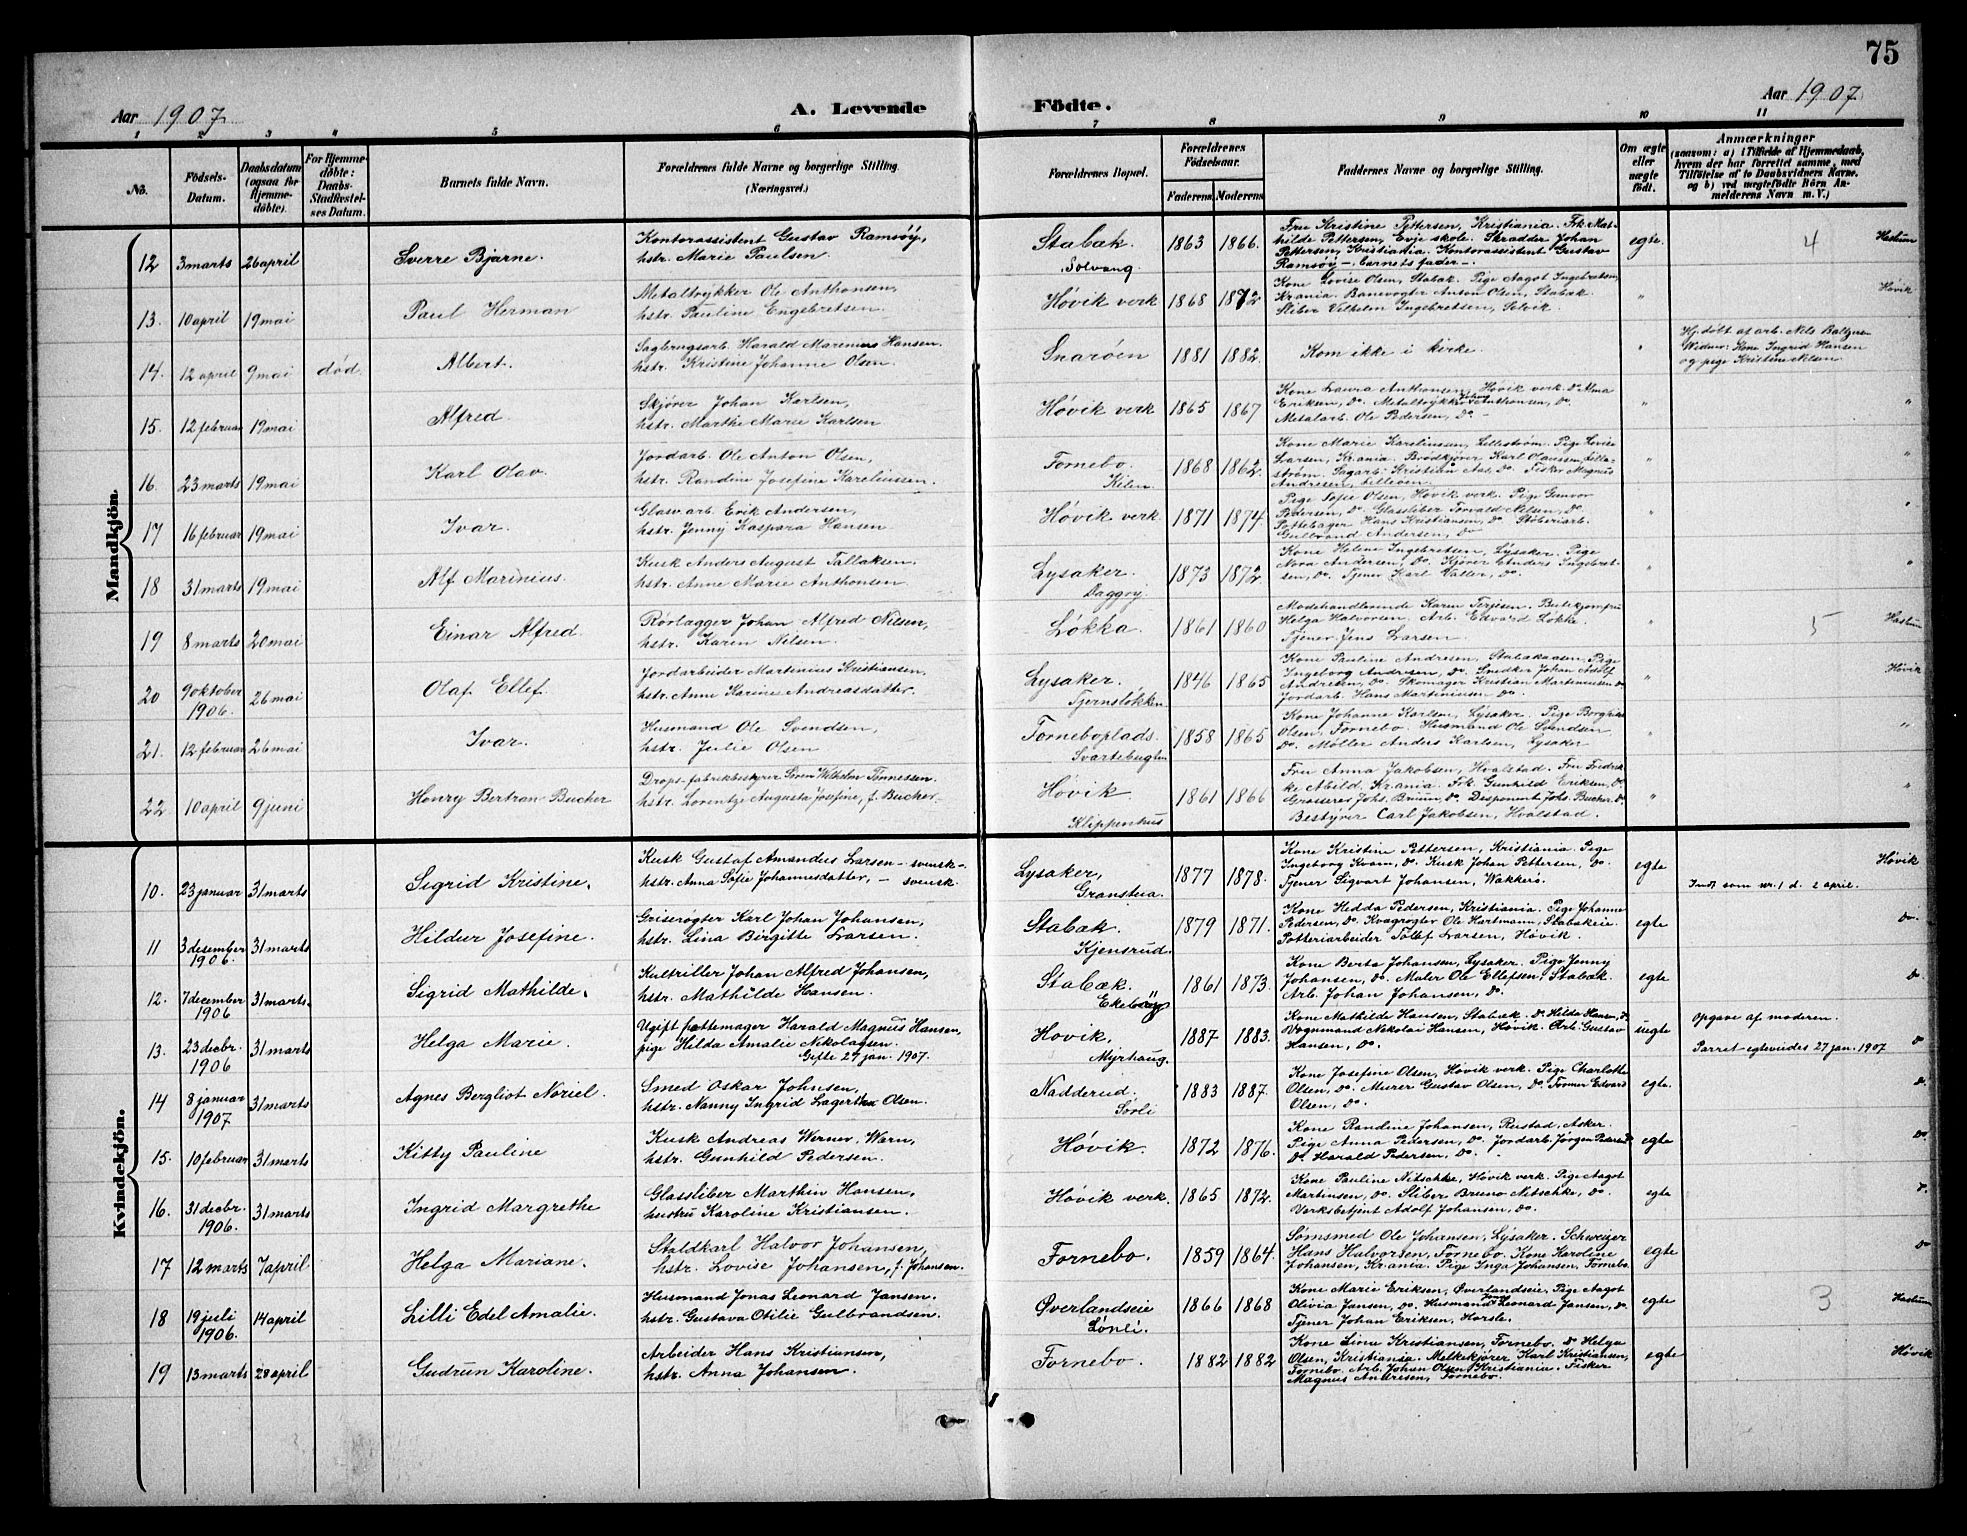 75
Aar 1907.
A. Levende Födte.
Aar 1907
1 2 3 4 5 6 7 8 9 10 11
No.
Födsels-Datum.
Daabsdatum (ogsaa for Hjemme-döbte).
For Hjemme-döbte: Daabs-Stadfæstel-ses Datum.
Barnets fulde Navn.
Forældrenes fulde Navne og borgerlige Stilling. (Næringsvei.)
Forældrenes Bopæl.
Forældrenes Födselsaar.
Faderens Moderens
Faddernes Navne og borgerlige Stilling.
Om ægte eller uægte födt.
Anmærkninger
(saasom: a) i Tilfælde af Hjemmedaab, hvem der har forrettet samme, med Tilföielse af to Daabsvidners Navne. og b) ved uægtefödte Börn An-melderens Navn m. V.)
Mandkjön.
12 3 marts 26 april Sverre Bjarne. Kontorassistent Gustav Ramsøy, hstr. Marie Paulsen. Stabæk. Solvang. 1863 1866. Fru Kristine Pettersen, Kristiania. Frk. Mat-hilde Pettersen, Evje skole. Skrædder Johan Pettersen, Kristiania. Kontorassistent Gustav Ramsøy - barnets fader - egte. 4 Haslum
13. 10 april 19 mai Paul Herman Metaltrykker Ole Anthonsen, hstr. Pauline Engebretsen. Høvik verk 1868 1872 Kone Lovise Olsen, Stabæk. Pige Aagot Ingebretsen, Krania. Banevogter Anton Olsen, Stabæk. Sliber Vilhelm Ingebretsen, " Høvik
14. 12 april 9 mai død Albert. Sagbrugsarb. Harald Marenius Hansen. hstr. Kristine Johanne Olsen. Snarøen 1881 1882. Kom ikke i kirke. " Hj. døbt af arb. Nils Widner: Kone Ingrid Hansen og pige Kristine Nilsen.
15. 12 februar 19 mai Alfred. Skjører Johan Karlsen, hstr. Marthe Marie Karlsen Høvik verk 1865 1867 Kone Laura Anthonsen, Høvik verk. Do Alma Eriksen, do. Metaltrykker Johan Anthonsen, do. Metalarb. Ole Pedersen, do - "
16. 23 marts 19 mai Karl Olav. Jordarb. Ole Anton Olsen, hstr. Randine Josefine Kareliussen. Fornebo. Kilen. 1868 1862. Kone Marie Kareliussen, Lillestrøm. Pige Lovise Larsen, Krania. Brødkjører Karl Olaussen, Lille-strøm. Sagarb. Kristian Aas, do. Fisker Magnus Andresen, " "
17 16 februar 19 mai Ivar. Glasv. arb. Erik Andersen, hstr. Jenny Kaspara Hansen Høvik verk 1871 1874. Pige Sofie Olsen, Høvik verk. Pige Gunvor Pedersen, do. Glassliber Torvald Nilsen, do. Pottebager Hans Kristiansen, do. Støberiarb. Gulbrand Andersen, do " "
18 31 marts 19 mai Alf Marinius. Kusk Anders August Tallaksen, hstr. Anne Marie Anthonsen. Lysaker. Daggry. 1873 1872. Kone Helene Ingebretsen, Lysaker. Pige Nora Andersen, do. Kjører Anders Ingebret-sen, do. Tjener Karl do. " "
19 8 marts 20 mai Einar Alfred. Rørlægger Johan Alfred Nilsen, hstr. Karen Nilsen. Løkka. 1861 1860 Modehandlerinde Karen Terjesen. Helga Halvorsen. Arb. Edvard Løkke. Tjener Jens Larsen. " 5 Haslum
20 9 oktober 1906. 26 mai Olaf Ellef. Jordarbeider Martinius Kristiansen, hstr. Anne Karine Andreasdatter. Lysaker. Tjernsløkken 1846 1865 Kone Pauline Andresen, Stabækaasen. Pige Ingeborg Andresen, do. Snedker Johan Adolf Andresen, do. Skomager Kristian Martiniussen, do Jordarb. Hans Martiniussen do. " Høvik
21. 12 februar 26 mai Ivar. Husmand Ole Svendsen, hstr. Julie Olsen Forneboplads. Svartebugten 1858 1865 Kone Johanne Karlsen, Lysaker. Pige Borghild Olsen, Fornebo. Husmand Ole Svendsen Do. Møller Anders Karlsen, Lysaker " "
22 10 april 9 juni Henry Bertran Bucher Drops-fabrikbestyrer Søren Wilhelm Tønnessen. hstr. Lorentze Augusta Josefine, f. Bucher. Høvik. Klippenhus 1861 1866 Fru Anna Jakobsen, Hvalstad. Fru Fredrik-ke Abild, Krania. Frk Gunhild Eriksen, Do. Grosserer Johs. Bruun, do. Disponent Johs. Bucher, do Bestyrer Carl Jakobsen, Hvalstad. " "
Kvindekjön.
10. 23 januar 31 marts Sigrid Kristine. Kusk Gustaf Amandus Larsen - svensk - hstr. Anna Sofie Johannesdatter, - svensk. Lysaker, Granstua. 1877 1878. Kone Kristine Pettersen, Kristiania. Pige Ingeborg Kvam, do. Kusk Johan Pettersen, do. Tjener Sigvart Johansen, Wækkerø. egte Indt som nr. 1 d. 2 april. Høvik
11 3 desember 1906. 31 marts Hildur Josefine. Griserøgter Karl Johan Johansen, hstr. Lina Birgitte Larsen. Stabæk. Kjensrud. 1879 1871. Kone Hedda Pedersen, Kristiania. Pige Johanne Pedersen, do. Kvægrøgter Ole Hartmann, Stabækeie. Potteriarbeider Tollef Larsen, Høvik. egte Do
12. 7 december 1906 31 marts. Sigrid Mathilde. Kultriller Johan Alfred Johansen, hstr. Mathilde Hansen. Stabæk. Ekeberg 1861 1873. Kone Berta Johansen, Lysaker. Pige Jenny Johansen, do. Maler Ole Ellefsen, Stabæk. Arb. Johan Johansen, do. egte Do
13. 23 decbr. 1906 31 marts Helga Marie. Ugift pottemager Harald Magnus Hansen, pige Hilda Amalie Nikolaysen. Gifte 27 jan. 1907. Høvik, Myrhaug. 1887 1883. Kone Mathilde Hansen, Stabæk. Do Hilda Hansen, do. Vognmand Nikolai Hansen, Høvik. Arb. Gustav Hansen, do. uegte Opgave af moderen. Parret egteviedes 27 jan. 1907 Do
14 8 januar 1907 31 marts Agnes Bergliot Noriel. Smed Oskar Johnsen, hstr. Nanny Ingrid Lagertha Olsen. Nadderud. Sorli 1883 1887. Kone Josefine Olsen, Høvik verk. Pige Charlotte Olsen, do. Murer Gustav Olsen, do. Former Edvard Olsen, do. egte. Do.
15. 10 februar 31 marts Kitty Pauline Kusk Andreas Werner Warn, hstr. Gunhild Pedersen. Høvik. 1872 1876. Kone Randine Johansen, Rustad, Asker. Pige Anna Pedersen, do. Jordarb. Jørgen Pedersen, Do. Harald Pedersen, do. egte Do
16. 31 decbr. 1906. 31 marts Ingrid Margrethe Glassliber Marthin Hansen, hustru Karoline Kristiansen. Høvik verk. 1865 1872. Kone Pauline Nitschke, Høvik verk. Pige Aagot Martinsen, do. Sliber Bruno Nitschke, do. Verksbetjent Adolf Johansen, do. egte
17 12 marts 7 april Helga Mariane. Staldkarl Halvor Johansen, hstr. Lovise Johansen, f. Johansen. Fornebo. 1859 1864. Sømsmed Ole Johansen, Lysaker. Schweizer Hans Halvorsen, Fornebo. Kone Karoline Johansen, Krania. Pige Inga Johansen, Fornebo. egte Do
18 19 juli 1906. 14 april Lilli Edel Amalie. Husmand Jonas Leonard Jansen. hstr. Gustava Otilie Gulbrandsen. Øverlandseie Lønli. 1866 1868 Kone Marie Eriksen, Øverlandseie. Pige Aagot Olivia Jansen, do. Husmand Jonas Leonard Jansen, do. Tjener Johan Eriksen, Horsle. egte 3 Haslum
19 13 marts 28 april Gudrun Karoline. Arbeider Hans Kristiansen, hstr. Anna Johansen. Fornebo. 1882 1882 Kone Line Kristiansen, Fornebo. Do Helga Olsen, Kristiania. Melkekjører Karl Kristiansen, Fornebo. Arb. Johan Olsen Kristiania. Fisker Magnus Andresen, Fornebo. egte Høvik